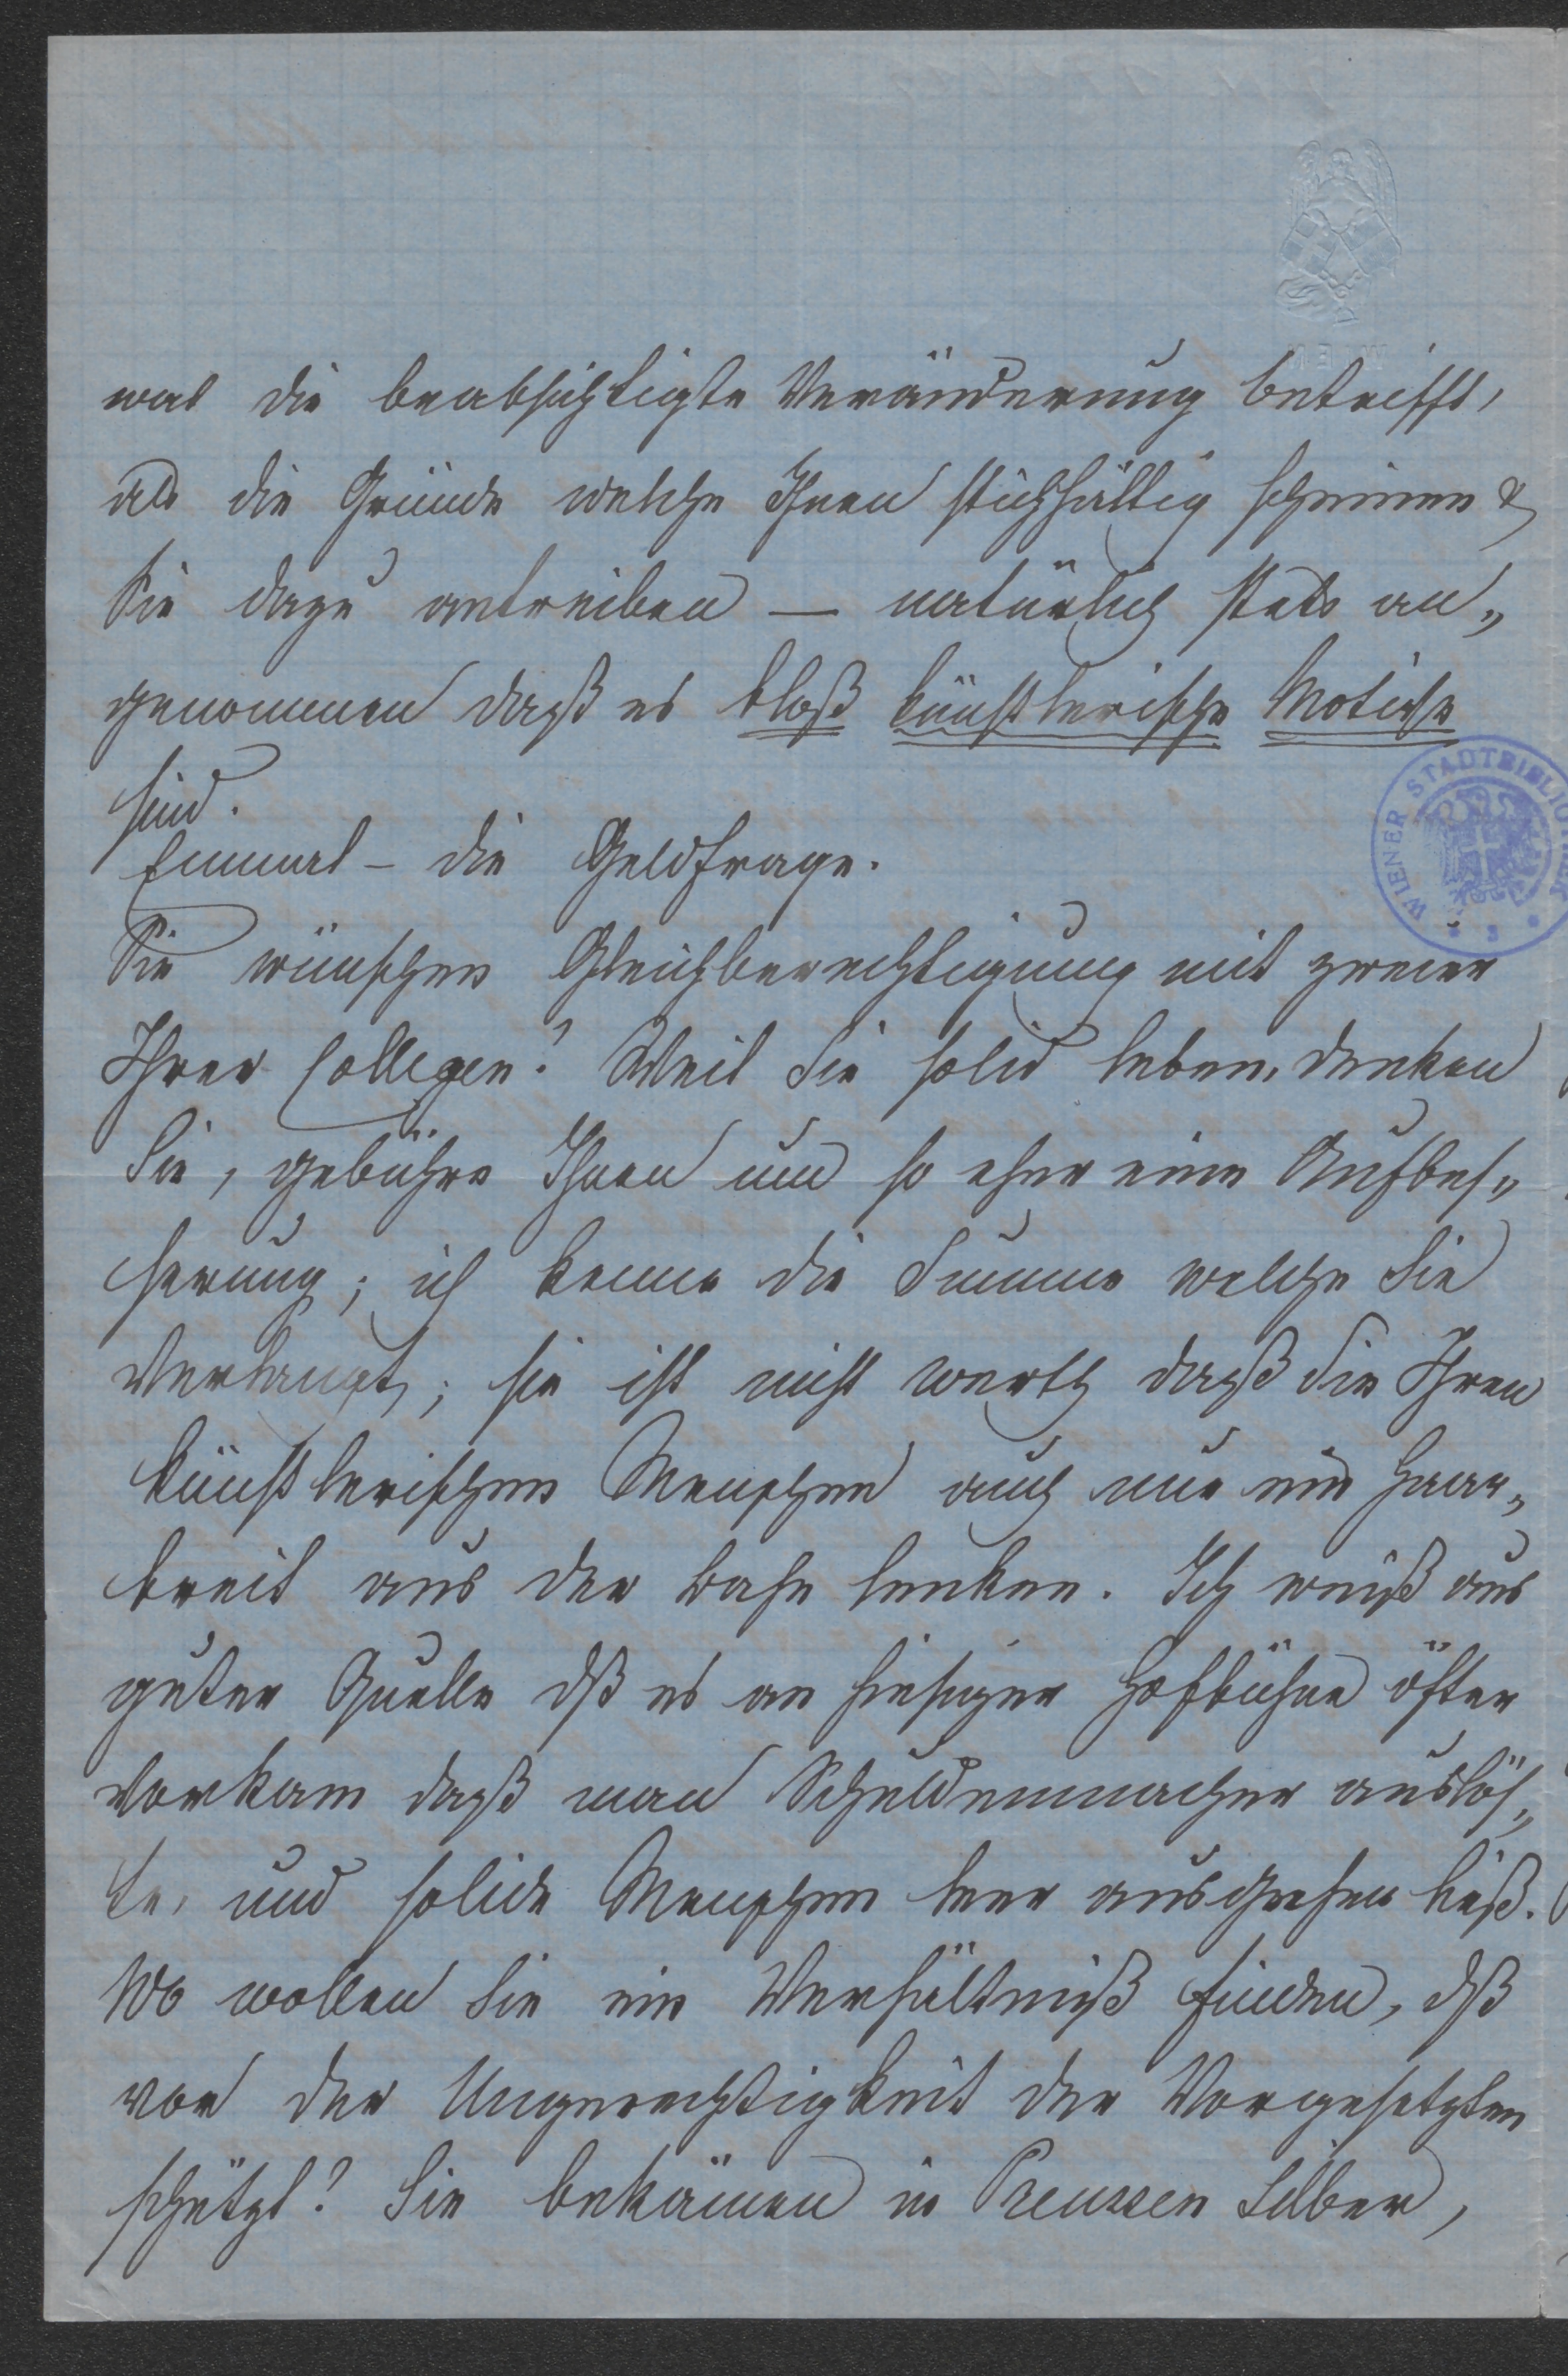 was die beabsichtigte Veränderung betrifft,
als die Gründe welche Ihnen stichhältig scheinen &
Sie dazu antreiben — natürlich stets an„
genommen daß es bloß künstlerische Motive
sind.
Einmal – die Geldfrage.
Sie wünschen Gleichberechtigung mit zweier
Ihrer Collegen? Weil Sie solid leben, denken
Sie, gebühre Ihnen um so eher eine Aufbes„
serung; ich kenne die Summe welche Sie
verlangt; sie ist nicht werth daß Sie Ihren
künstlerischen Menschen auch nur ein Haar„
breit aus der Bahn lenken. Ich weiß aus
guter Quelle dß es an hiesiger Hofbühne öfter
vorkam daß man Schuldenmacher auslös„
te, und solide Menschen leer ausgehen ließ.
Wo wollen Sie ein Verhältniß finden, dß
vor der Ungerechtigkeit der Vorgesetzten
schützt? Sie bekämen in Preussen Silber,
WIEN
WIENER STADTBIBLIOTHEK